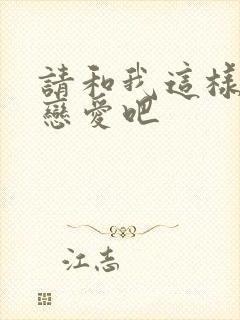 請和我這樣
戀愛吧
江志